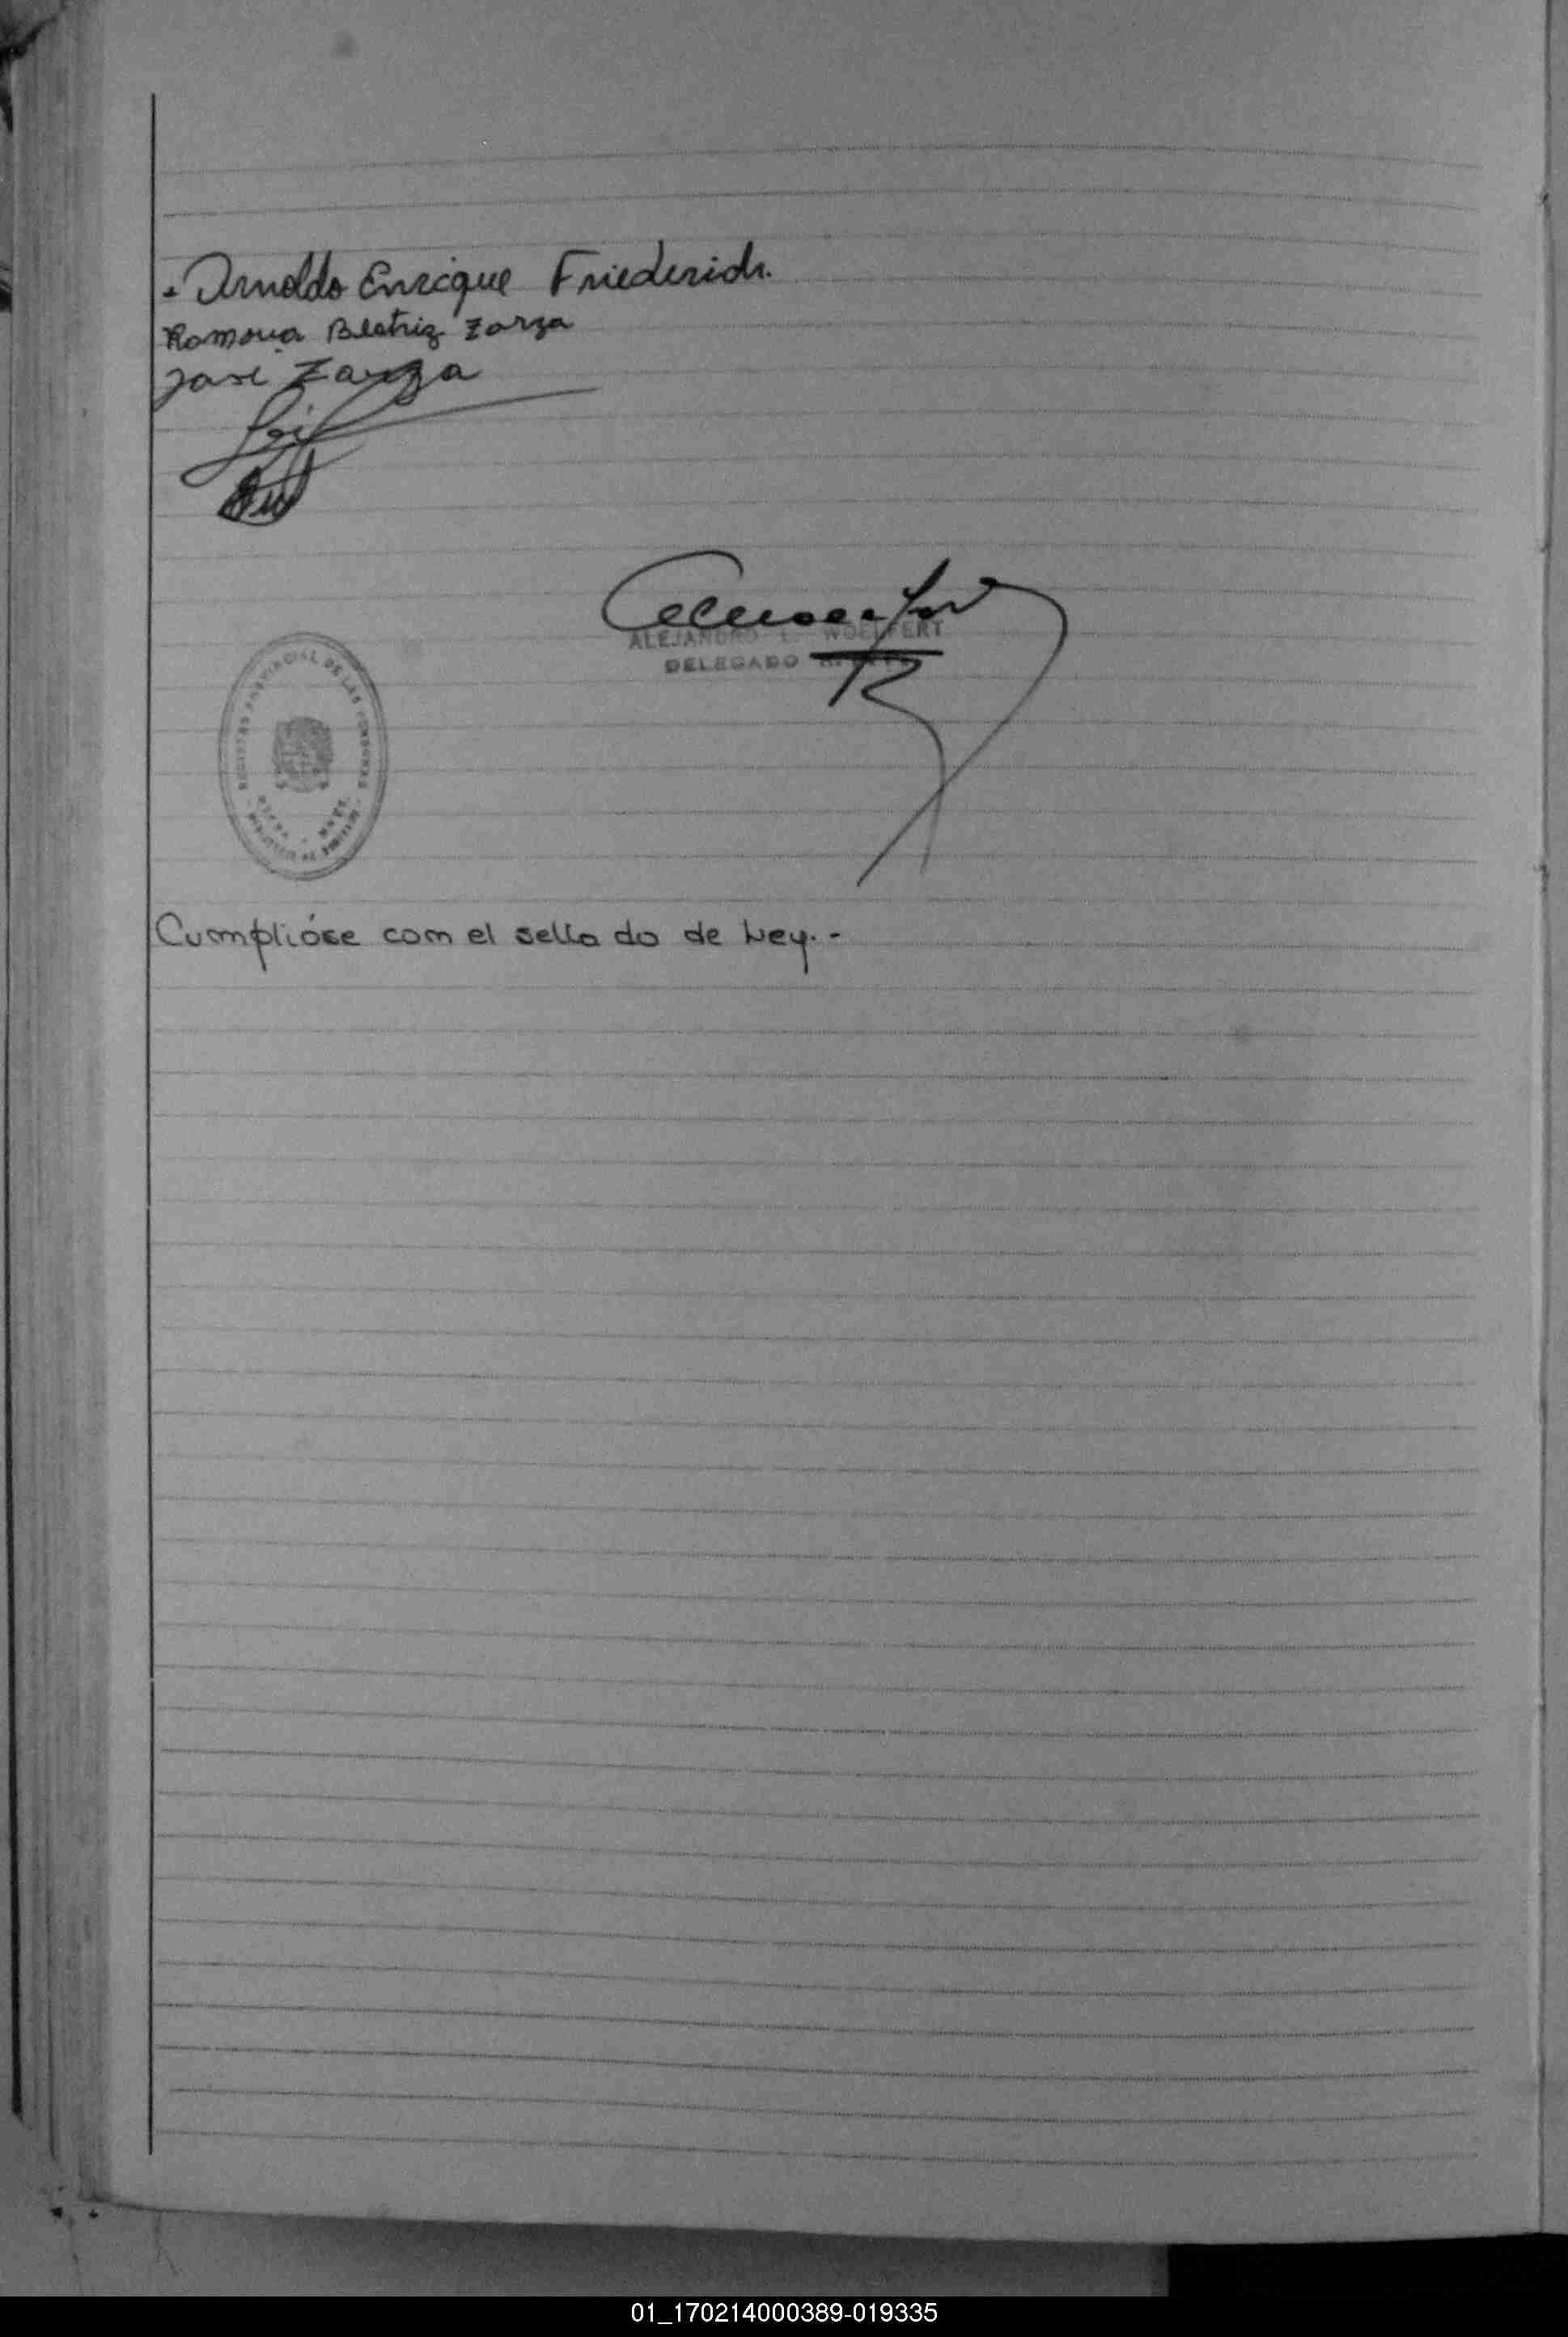 Arnoldo Enrique Friederich.
Ramona Beatriz Zarza
José Zarza
ALEJANDRO L. WOELFERT
DELEGADO
REGISTRO PROVINCIAL DE LAS PERSONAS
Cumplióse com el sellado de Ley. -
01_170214000389-019335